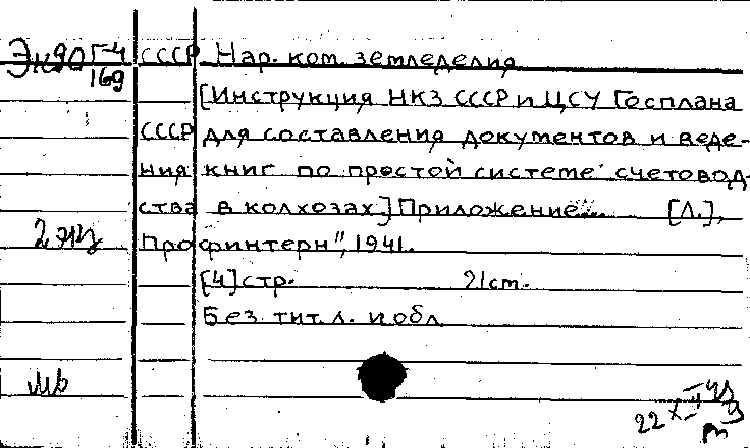 Эк90 Г-4 СССР Нар. ком. земледелия
169
[Инструкция НКЗ СССР и ЦСУ Госплана
СССР для составления документов и веде-
ния книг по простой системе счетовод-
ства в колхозах] Приложение... [Л.],
2 экз Профинтерн", 1941.
[4] стр. 21 cm.
Без тит. л. и обл.
22 X